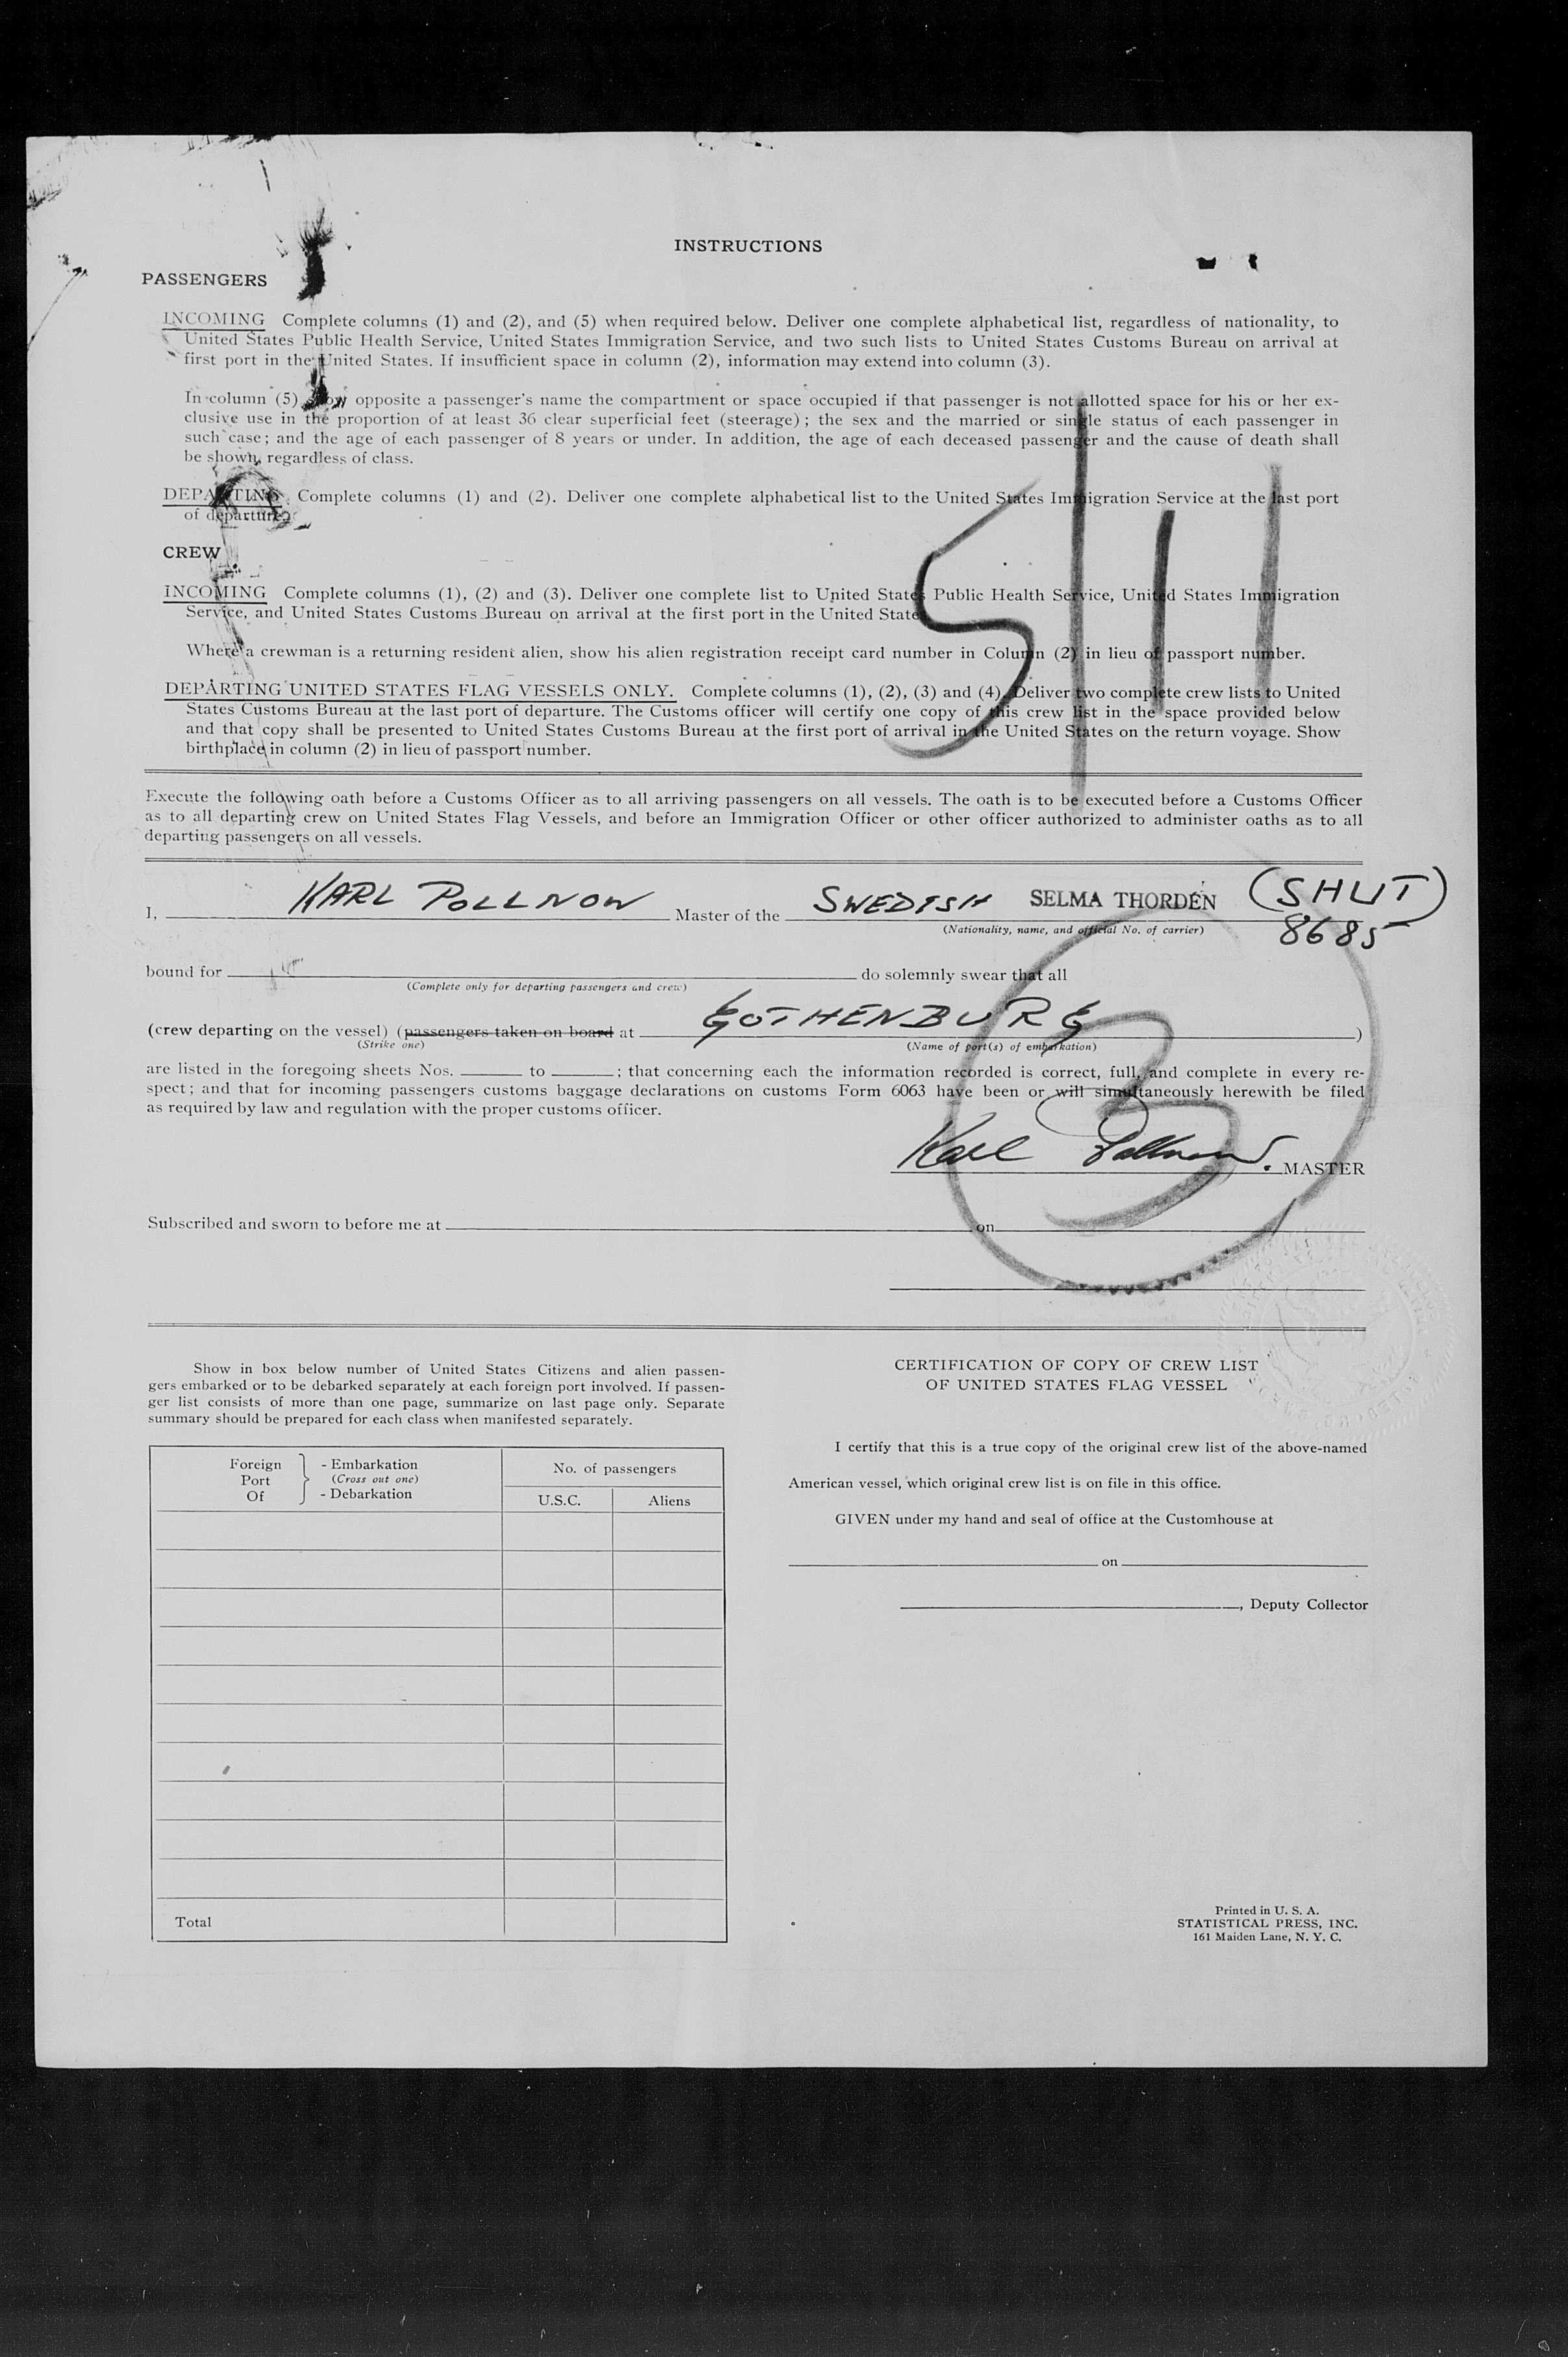 INSTRUCTIONS
PASSENGERS
INCOMING Complete columns (1) and (2), and (5) when required below. Deliver one complete alphabetical list, regardless of nationality, to
United States Public Health Service, United States Immigration Service, and two such lists to United States Customs Bureau on arrival at
first port in the United States. If insufficient space in column (2), information may extend into column (3).
In column (5) show opposite a passenger's name the compartment or space occupied if that passenger is not allotted space for his or her ex-
clusive use in the proportion of at least 36 clear superficial feet (steerage); the sex and the married or single status of each passenger in
such case; and the age of each passenger of 8 years or under. In addition, the age of each deceased passenger and the cause of death shall
be shown, regardless of class.
DEPARTING Complete columns (1) and (2). Deliver one complete alphabetical list to the United States Immigration Service at the last port
of departure.
CREW
INCOMING Complete columns (1), (2) and (3). Deliver one complete list to United States Public Health Service, United States Immigration
Service, and United States Customs Bureau on arrival at the first port in the United State
Where a crewman is a returning resident alien, show his alien registration receipt card number in Column (2) in lieu of passport number.
DEPARTING UNITED STATES FLAG VESSELS ONLY. Complete columns (1), (2), (3) and (4). Deliver two complete crew lists to United
States Customs Bureau at the last port of departure. The Customs officer will certify one copy of this crew list in the space provided below
and that copy shall be presented to United States Customs Bureau at the first port of arrival in the United States on the return voyage. Show
birthplace in column (2) in lieu of passport number.
Execute the following oath before a Customs Officer as to all arriving passengers on all vessels. The oath is to be executed before a Customs Officer
as to all departing crew on United States Flag Vessels, and before an Immigration Officer or other officer authorized to administer oaths as to all
departing passengers on all vessels.
I, KARL POLLNOW Master of the SWEDISH SELMA THORDÉN (SHUT)
(Nationality, name, and official No. of carrier) 8685
bound for do solemnly swear that all
(Complete only for departing passengers and crew)
(crew departing on the vessel) (passengers taken on board at GOTHENBURG )
(Strike one) (Name of port(s) of embarkation)
are listed in the foregoing sheets Nos. to ; that concerning each the information recorded is correct, full, and complete in every re-
spect; and that for incoming passengers customs baggage declarations on customs Form 6063 have been or will simultaneously herewith be filed
as required by law and regulation with the proper customs officer.
3
Karl Pollnow. MASTER
Subscribed and sworn to before me at on
Show in box below number of United States Citizens and alien passen-
gers embarked or to be debarked separately at each foreign port involved. If passen-
ger list consists of more than one page, summarize on last page only. Separate
summary should be prepared for each class when manifested separately.
Foreign Port Of - Embarkation
(Cross out one)
- Debarkation
No. of passengers
U.S.C. Aliens
Total
CERTIFICATION OF COPY OF CREW LIST
OF UNITED STATES FLAG VESSEL
I certify that this is a true copy of the original crew list of the above-named
American vessel, which original crew list is on file in this office.
GIVEN under my hand and seal of office at the Customhouse at
on
, Deputy Collector
Printed in U. S. A.
STATISTICAL PRESS, INC.
161 Maiden Lane, N. Y. C.